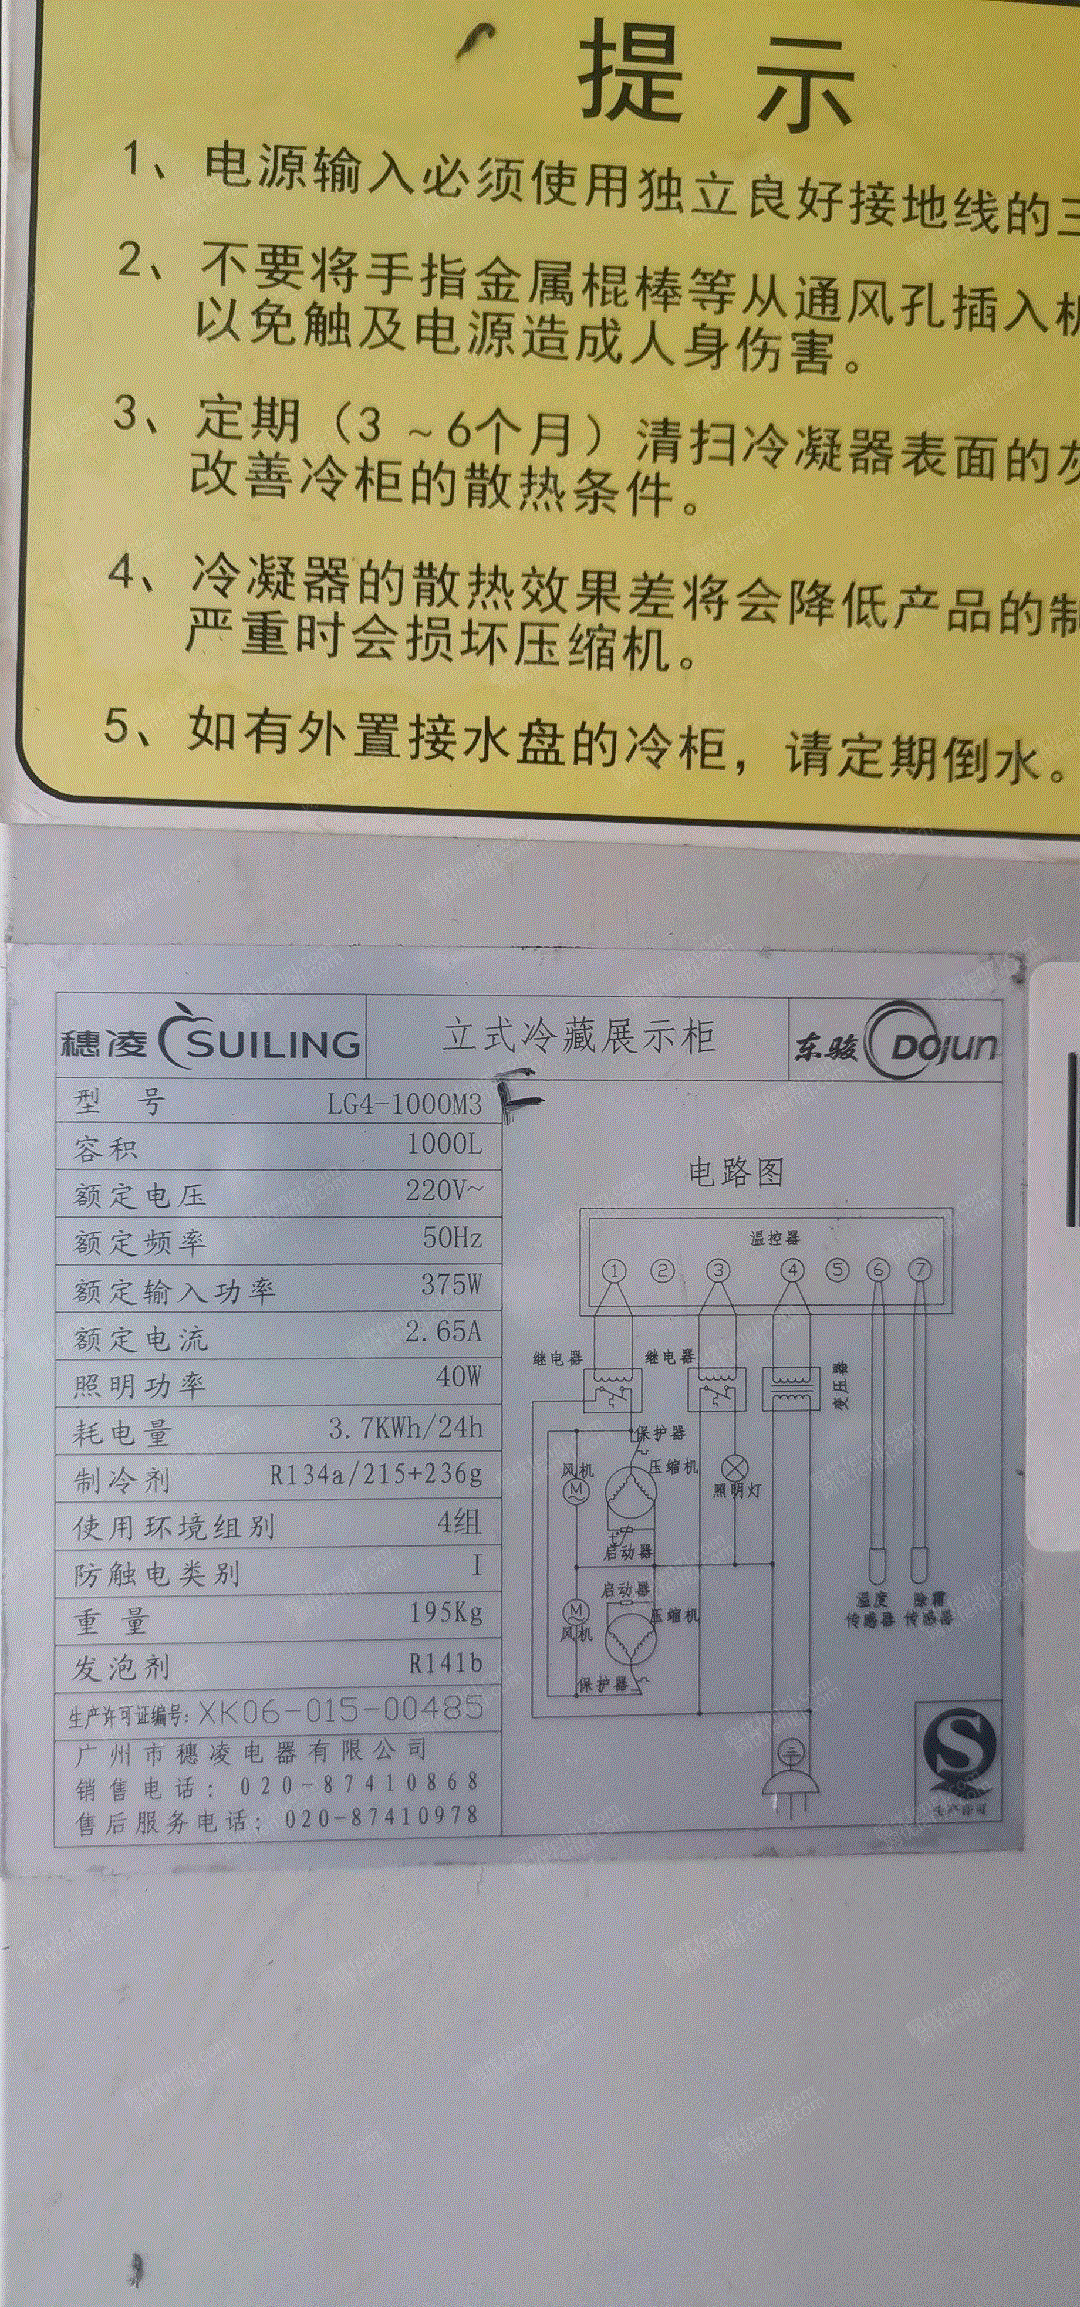 提示
1、电源输入必须使用独立良好接地线的三
2、不要将手指金属棍棒等从通风孔插入机
以免触及电源造成人身伤害。
3、定期（3～6个月）清扫冷凝器表面的灰
改善冷柜的散热条件。
4、冷凝器的散热效果差将会降低产品的制
严重时会损坏压缩机。
5、如有外置接水盘的冷柜，请定期倒水。
穗凌 SUILING 立式冷藏展示柜 东骏 DOJUN
型号 LG4-1000M3
容积 1000L
额定电压 220V~
额定频率 50Hz
额定输入功率 375W
额定电流 2.65A
照明功率 40W
耗电量 3.7KWh/24h
制冷剂 R134a/215+236g
使用环境组别 4组
防触电类别 I
重量 195Kg
发泡剂 R141b
生产许可证编号: XK06-015-00485
广州市穗凌电器有限公司
销售电话: 020-87410868
售后服务电话: 020-87410978
电路图
温控器
1 2 3 4 5 6 7
继电器 继电器 变压器
保护器
风机 M 压缩机 照明灯
启动器
启动器
M 压缩机
风机
保护器
温度传感器 除霜传感器
S
生产许可